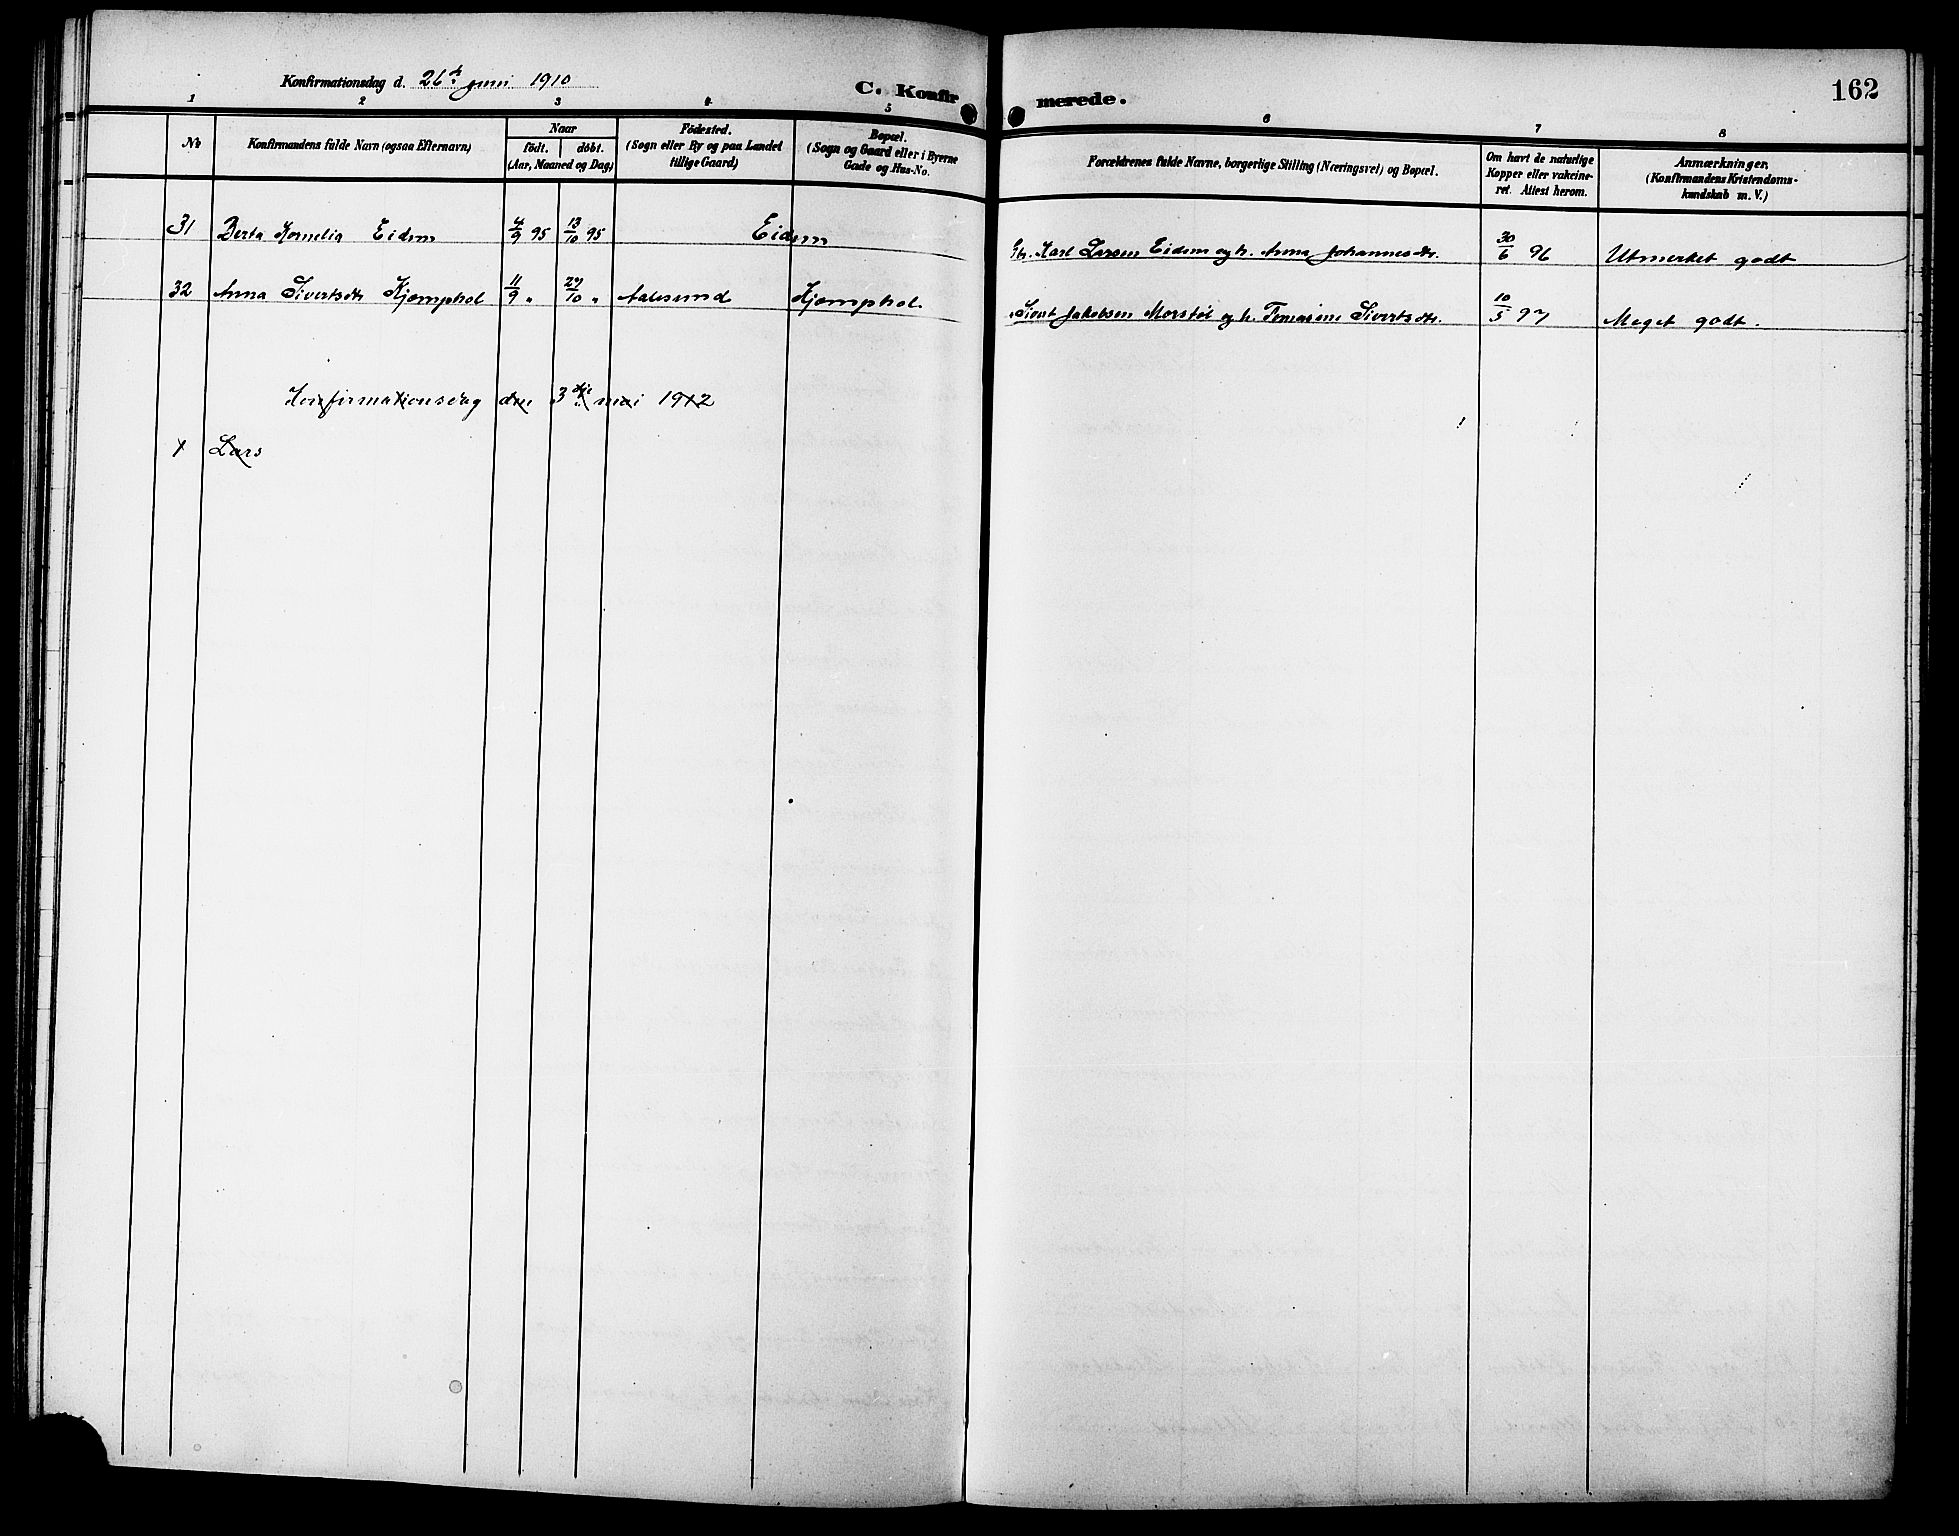 Konfirmationsdag d. 26de juni 1910
C. Konfirmerede.
162
1 2 3 4 5 6 7 8
No
Konfirmandens fulde Navn (ogsaa Efternavn)
Naar
födt. döbt.
(Aar, Maaned og Dag)
Födested.
(Sogn eller By og paa Landet
tillige Gaard)
Bopæl.
(Sogn og Gaard eller i Byerne
Gade og Hus-No.
Forældrenes fulde Navne, borgerlige Stilling (Næringsvei) og Bopæl.
Om havt de naturlige
Kopper eller vakcine-
ret. Attest herom.
Anmærkninger,
(Konfirmandens Kristendoms-
kundskab m. V.)
31 Berta Kornelia Eidem 4/9 95 13/10 95 Eidem Gbr. Karl Larsen Eidem og h. Anna Johannesdtr. 30/6 96 Utmerket godt
32 Anna Sivertsdtr Kjæmphol 11/9 " 27/10 " Aalesund Kjæmphol Sivert Jakobsen Morstøl og h. Tomasine Sivertsdtr. 10/5 97 Meget godt.
Konfirmationsdag den 3dje mai 1912
1 Lars